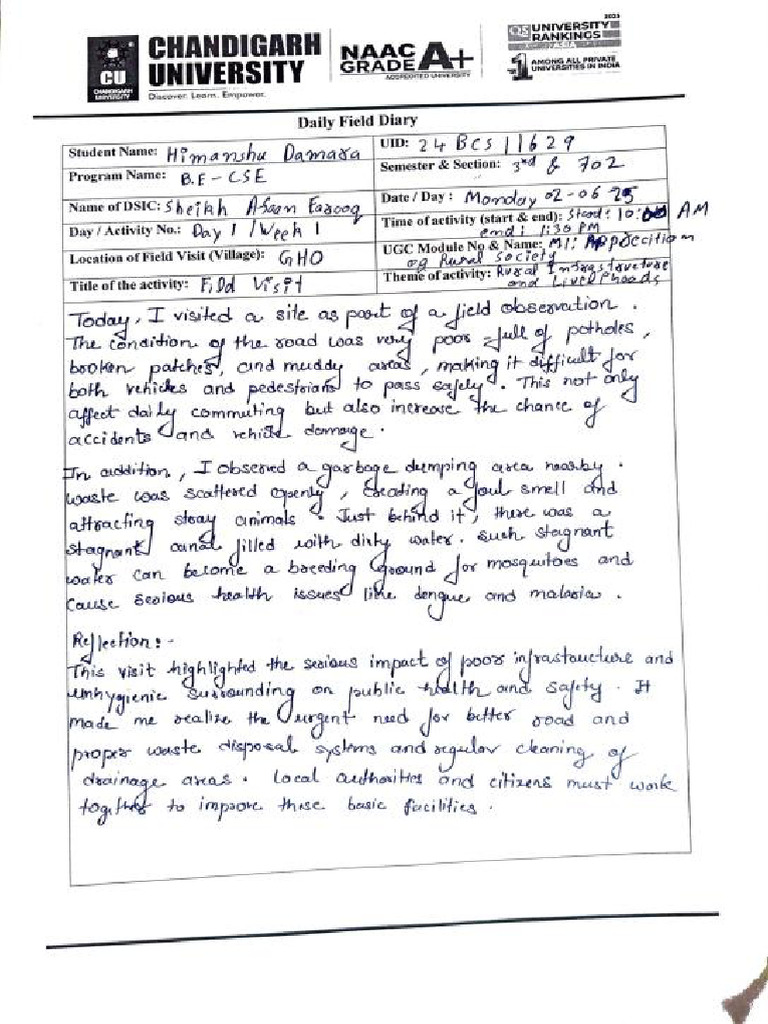 CHANDIGARH
UNIVERSITY
Discover. Learn. Empower.
CU
CHANDIGARH
UNIVERSITY
NAAC
GRADE A+
ACCREDITED UNIVERSITY
2025
QS UNIVERSITY
RANKINGS
ASIA
1 AMONG ALL PRIVATE
UNIVERSITIES IN INDIA
Daily Field Diary
Student Name: Himanshu Damara
UID: 24 BCS 11629
Program Name: B.E - CSE
Semester & Section: 3rd & 702
Name of DSIC: Sheikh Afaan Farooq
Date / Day : Monday 02-06-25
Day / Activity No.: Day 1 / Week 1
Time of activity (start & end): Start: 10:00 AM
end: 1:30 PM
Location of Field Visit (Village): GHO
UGC Module No & Name: M1: Apprecition
of Rural Society
Title of the activity: Fild Visit
Theme of activity: Rural Infrastructure
and Livelihoods
Today, I visited a site as part of a field observation.
The condition of the road was very poor - full of potholes,
broken patches, and muddy areas, making it difficult for
both vehicles and pedestrians to pass safely. This not only
affect daily commuting but also increase the chance of
accidents and vehicle damage.
In addition, I observed a garbage dumping area nearby.
waste was scattered openly, creating a foul smell and
attracting stray animals. Just behind it, there was a
stagnant canal filled with dirty water. such stagnant
water can become a breeding ground for mosquitoes and
cause serious health issues like dengue and malaria.
Reflection:-
This visit highlighted the serious impact of poor infrastructure and
unhygienic surrounding on public health and safety. It
made me realize the urgent need for better road and
proper waste disposal systems and regular cleaning of
drainage areas. local authorities and citizens must work
together to improve these basic facilities.